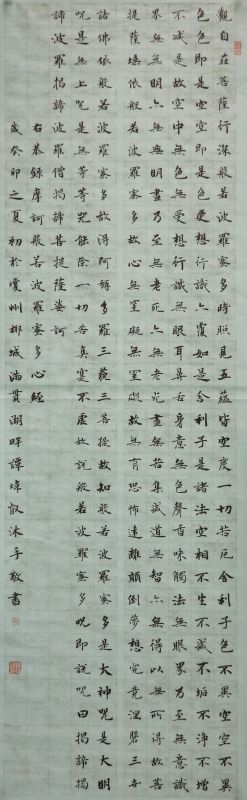 觀自在菩薩行深般若波羅蜜多時照見五蘊皆空度一切苦厄舍利子色不異空空不異
色色即是空空即是色受想行識亦復如是舍利子是諸法空相不生不滅不垢不淨不增
不減是故空中無色無受想行識無眼耳鼻舌身意無色聲香味觸法無眼界乃至無意識
界無無明亦無無明盡乃至無老死亦無老死盡無苦集滅道無智亦無得以無所得故菩
提薩埵依般若波羅蜜多故心無罣礙無罣礙故無有恐怖遠離顛倒夢想究竟涅槃三世
諸佛依般若波羅蜜多故得阿耨多羅三藐三菩提故知般若波羅蜜多是大神咒是大明
咒是無上咒是無等等咒能除一切苦真實不虛故說般若波羅蜜多咒即說咒曰揭諦揭
諦波羅揭諦波羅僧揭諦菩提薩婆訶
右恭錄摩訶般若波羅蜜多心經
歲癸卯之夏初於瓊州郡城滿貫湖畔譚煒叡沐手敬書